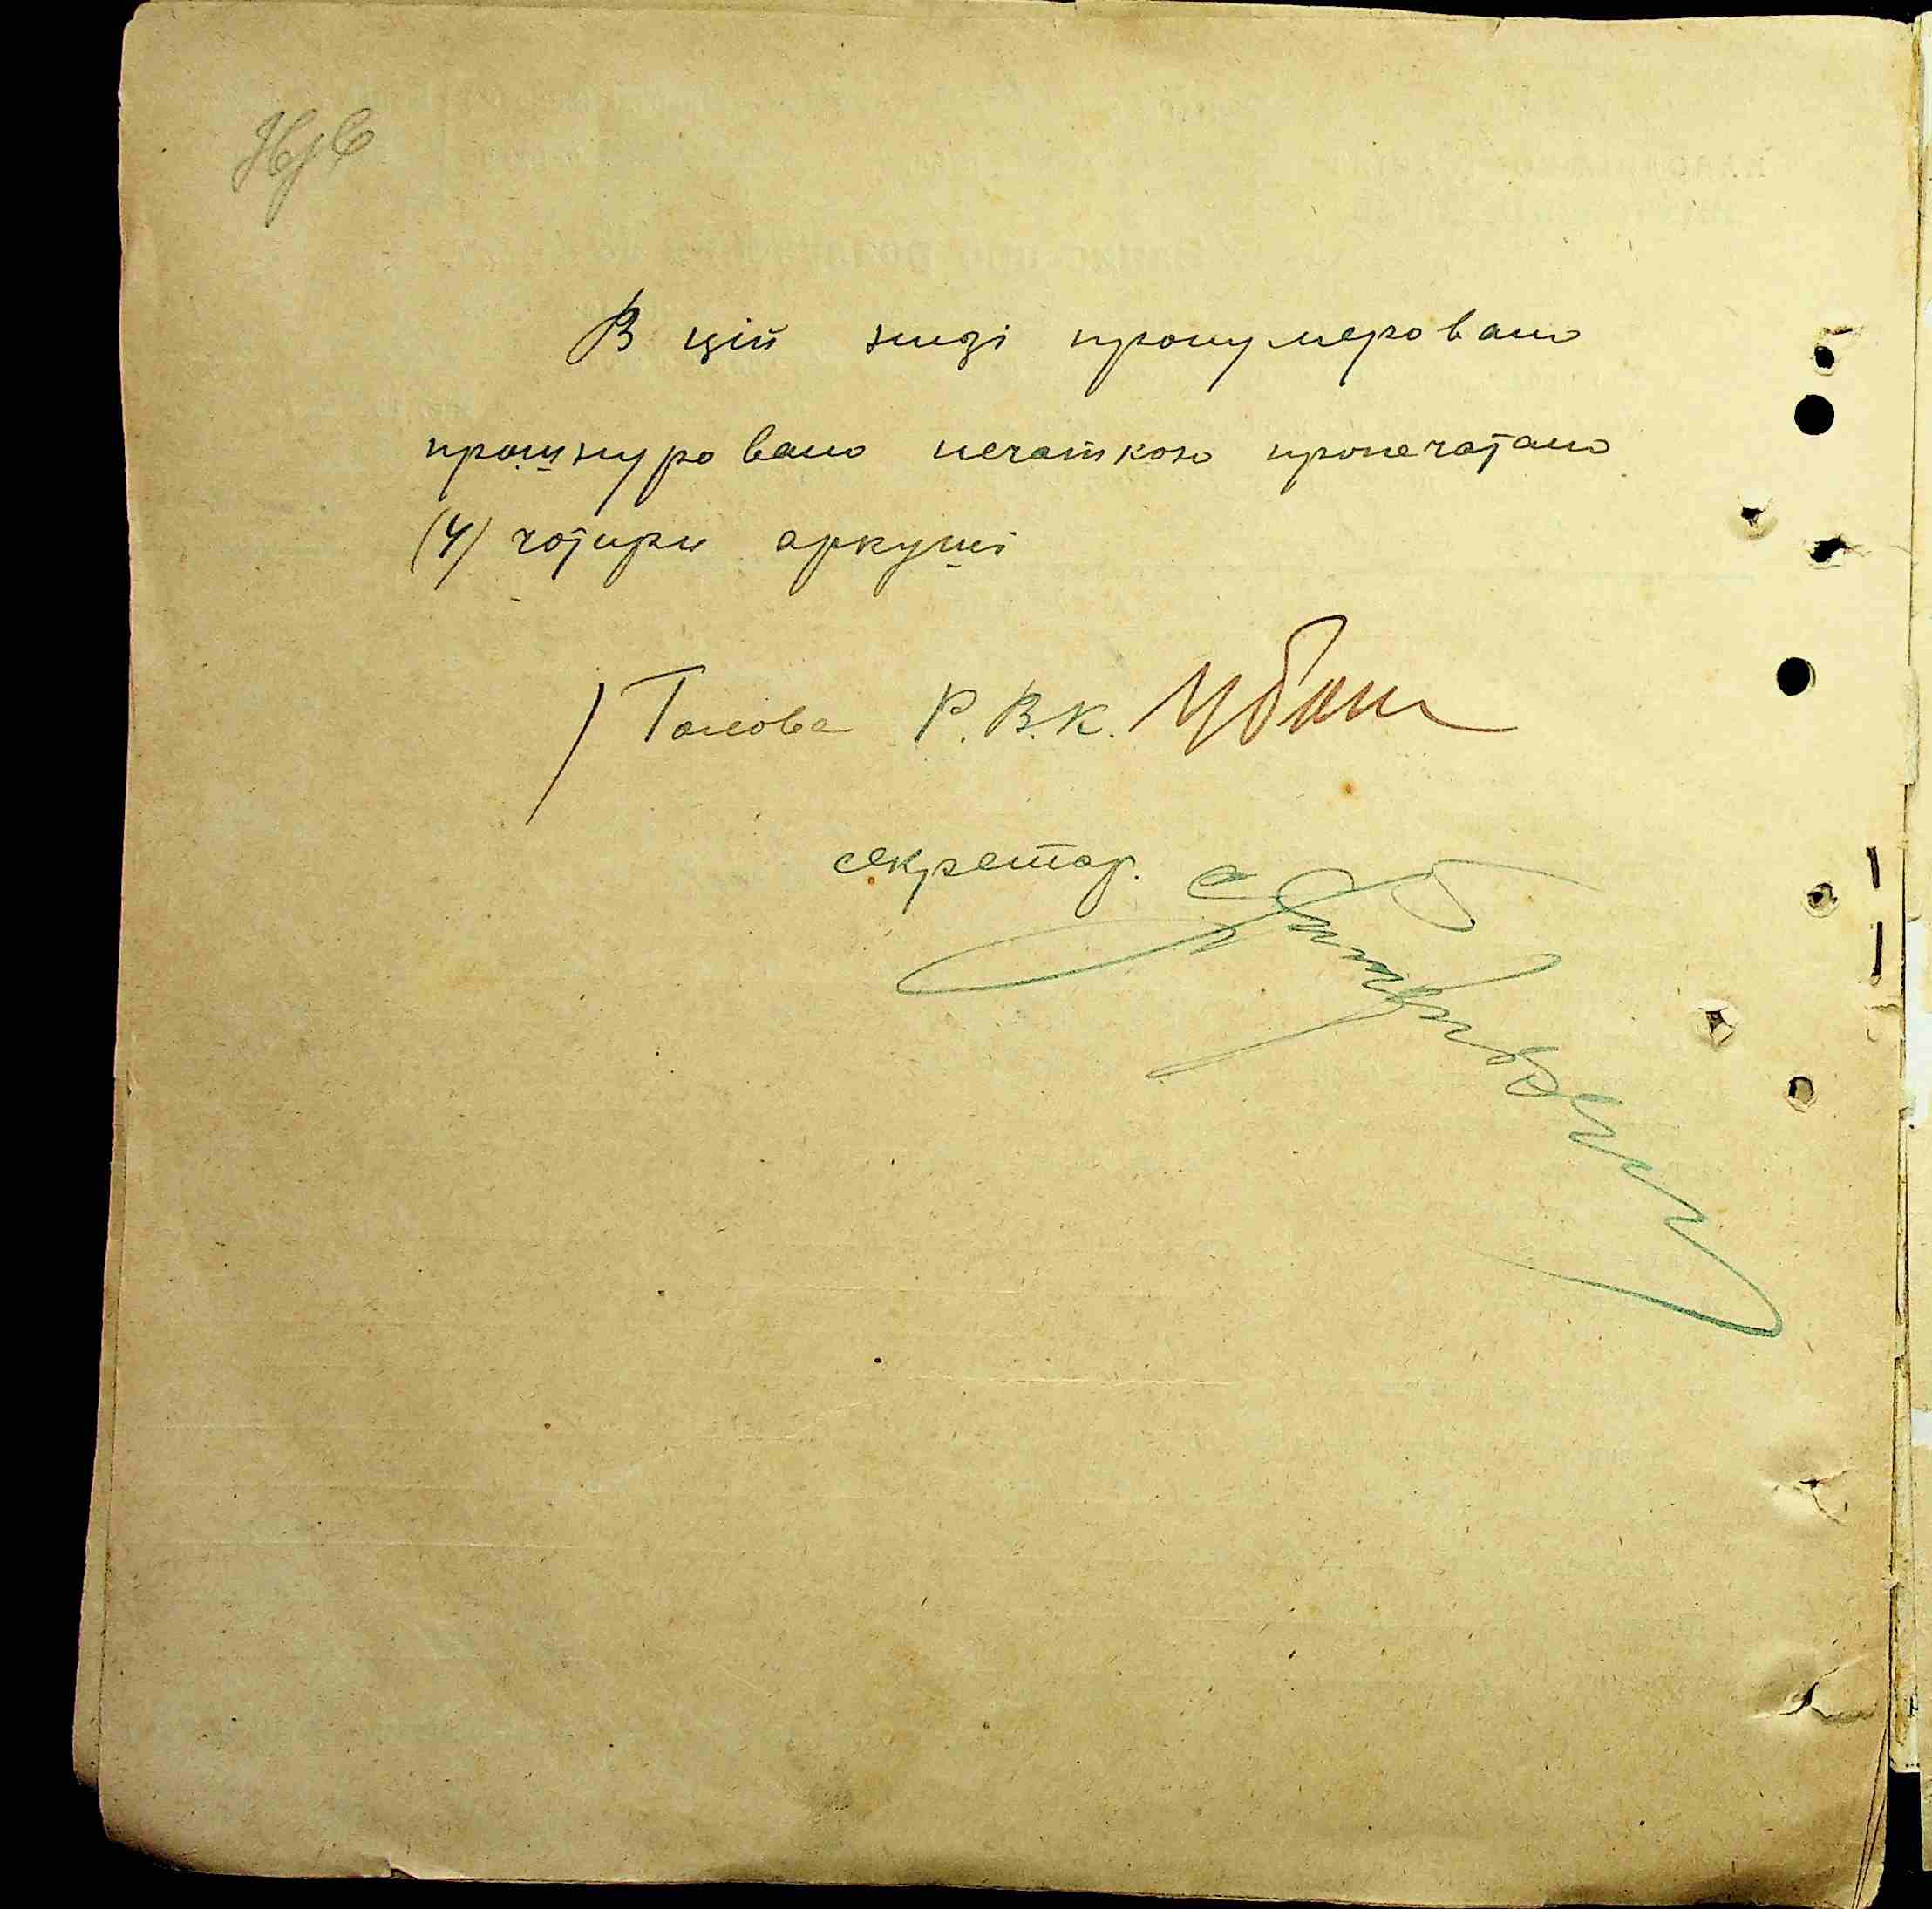 В цій книзі пронумеровано
прошнуровано печаткою пропечатано
(4) чотири аркуші
Голова Р.В.К.
секретар.